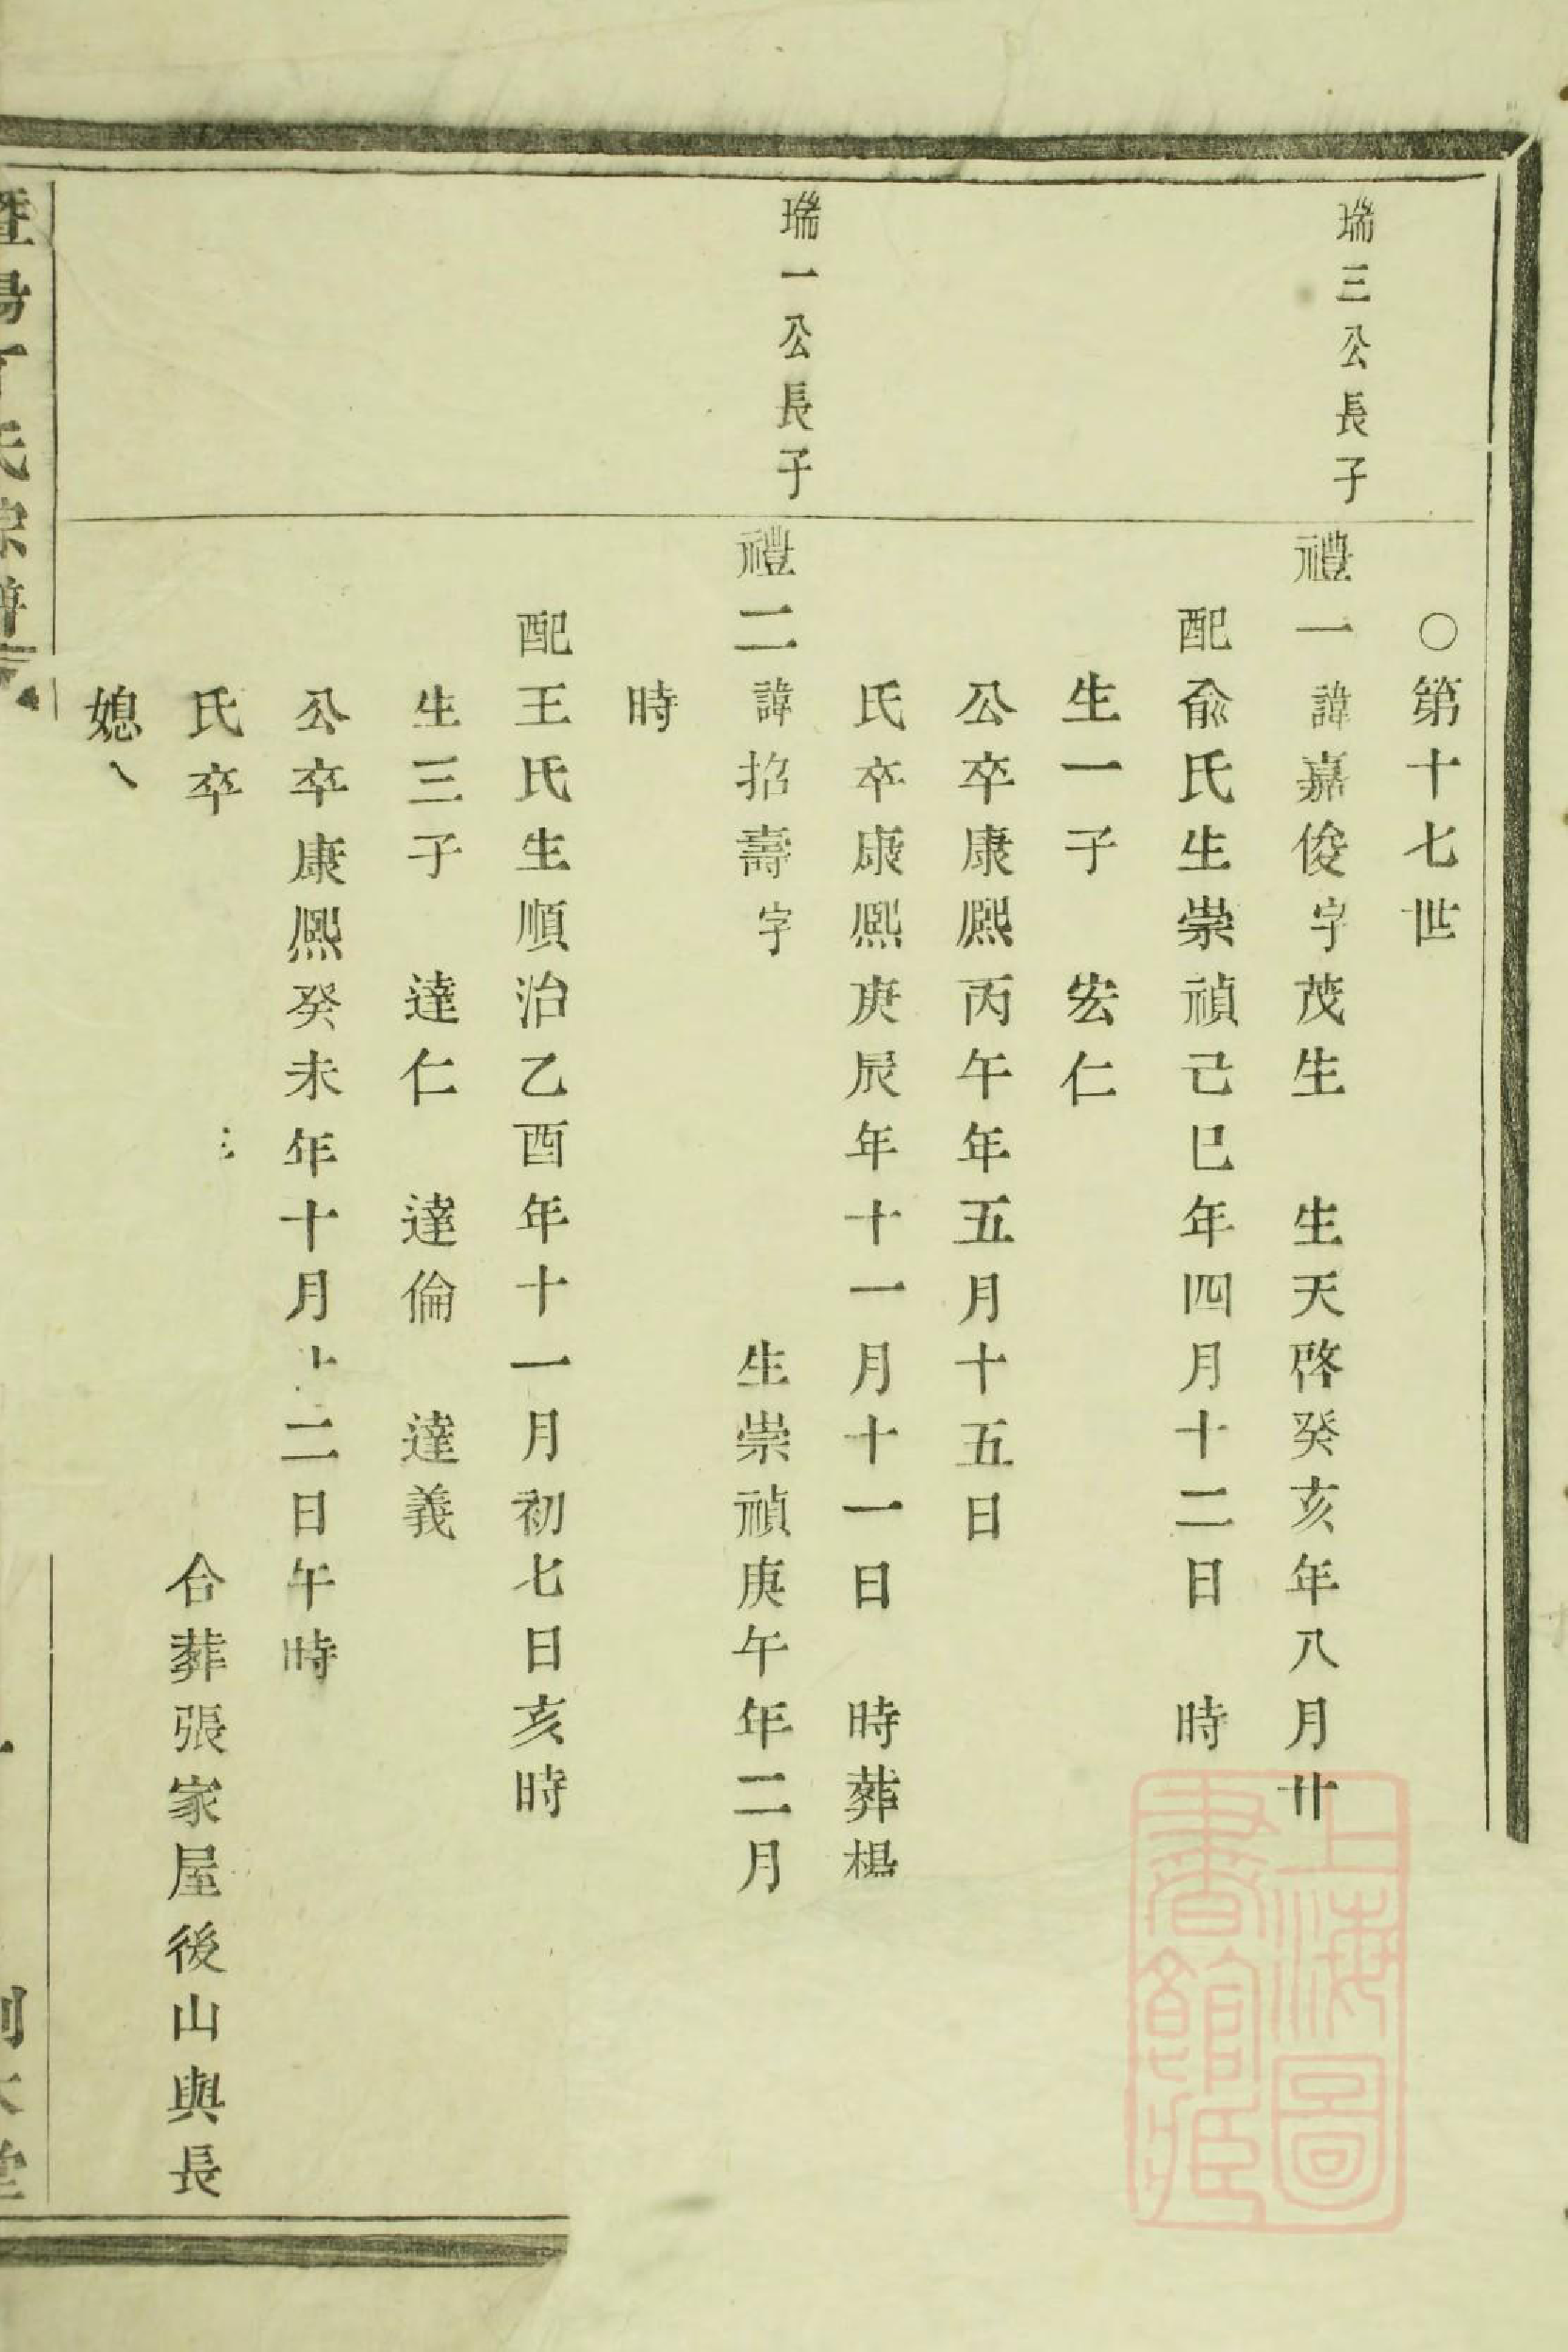 ○第十七世
瑞三公長子
禮一諱嘉俊字茂生　生天啓癸亥年八月廿
配兪氏生崇禎己巳年四月十二日　時
生一子　宏仁
公卒康熙丙午年五月十五日
氏卒康熙庚辰年十一月十一日　時葬楊
瑞一公長子
禮二諱招壽字　生崇禎庚午年二月
時
配王氏生順治乙酉年十一月初七日亥時
生三子　達仁　達倫　達義
公卒康熙癸未年十月十二日午時
氏卒　合葬張家屋後山與長
媳
暨陽丁氏宗譜
上海圖
書館藏